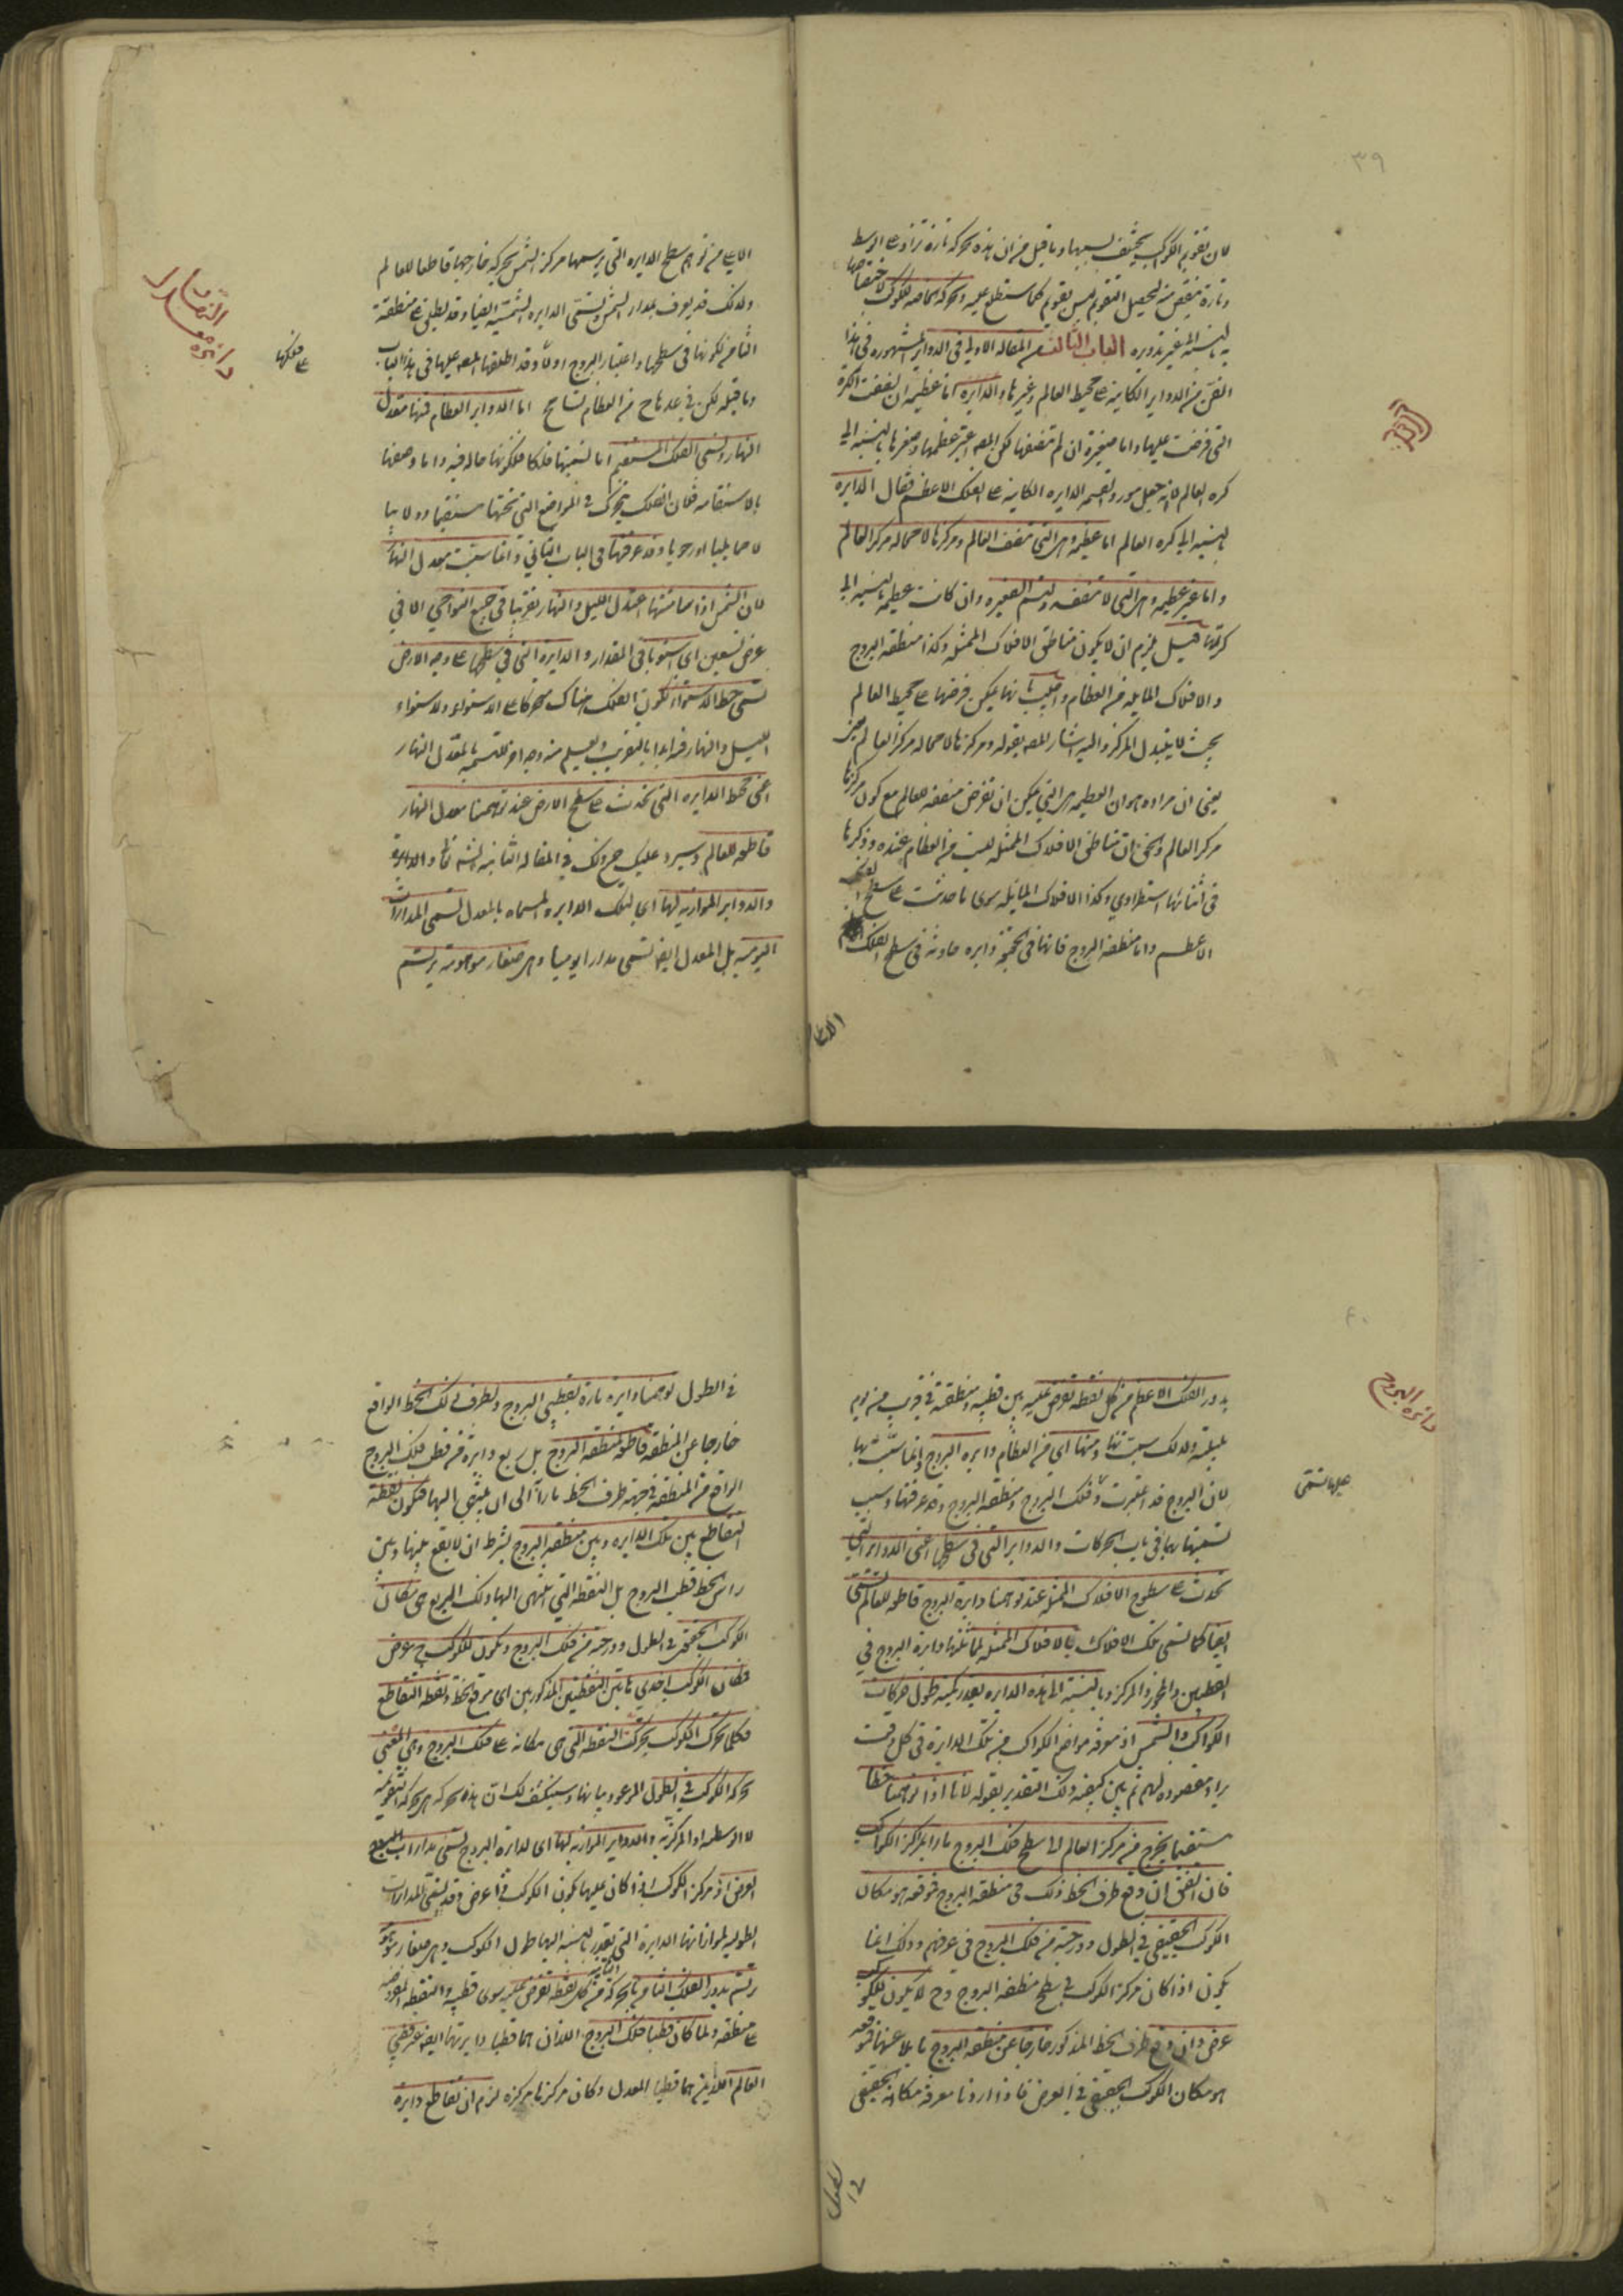 ٣٩
لان تقويم الكوكب يختلف بسببها وما قيل من ان هذه حركة تارة تزاد على الوسط
وتارة تنقص منه لتحصيل التقويم ليس بقويم كما ستطلع عليه وحركة الخاصة للكوكب لاختصاصها
به بالنسبة الى غير تدويره الباب الثالث من المقالة الاولى في الدواير المشهورة في هذا
الفن من الدواير الكاينة على محيط العالم وغيرها والدايرة اما عظيمة ان نصفت الكرة
التي فرضت عليها واما صغيرة ان لم تنصفها لكن المصه اعتبر عظمها وصغرها بالنسبة الى
كرة العالم لانه جعل مورد القسمة الدايرة الكاينة على الفلك الاعظم فقال الدايرة
بالنسبة الى كرة العالم اما عظيمة وهي التي تنصف العالم ومركزها لا محالة مركز العالم
واما غير عظيمة وهي التي لا تنصفه وتسم الصغيرة وان كانت عظيمة بالنسبة الى
كرتها قيل يلزم ان لا يكون مناطق الافلاك الممثلة وكذا منطقة البروج
والافلاك المايلة من العظام واجيب بانها يمكن فرضها على محيط العالم
بحيث لا يتبدل المركز واليه اشار المصه بقوله ومركزها لا محالة مركز العالم
يعني ان مراده هو ان العظيمة هي التي يمكن ان تفرض منصفة للعالم مع كون مركزها
مركز العالم والحق ان مناطق الافلاك الممثلة ليست من العظام عنده وذكرها
في اثنائها استطرادي وكذا الافلاك المايلة سوى ما حدثت على سطح الفلك
الاعظم واما منطقة البروج فانها في الحقيقة دايرة حادثة في سطح الفلك
الاعلى
الاعلى من توهم سطح الدايرة التي يرسمها مركز الشمس بحركة خارجها قاطعا للعالم
ولذلك قد يعرف بمدار الشمس وتسمى الدايرة الشمسية ايضا وقد يطلق على منطقة
الثامن لكونها في سطحها واعتبار البروج اولا وقد اطلقها المصه عليها في هذا الباب
وما قبله لكن في عدها ح من العظام تسامح اما الدواير العظام فمنها معدل
النهار وتسمى الفلك المستقيم اما تسميتها فلكا فلكونها حاله فيه واما وصفها
بالاستقامة فلان الفلك يتحرك في المواضع التي تحتها مستقيما دولابيا
لا حمايليا او رحويا وقد عرفتها في الباب الثاني وانما سميت بمعدل النهار
لان الشمس اذا سامتتها اعتدل الليل والنهار تقريبا في جميع النواحي الا في
عرض تسعين اى استويا في المقدار والدايرة التي في سطحها على وجه الارض
تسمى خط الاستواء لكون الفلك هناك متحركا على الاستواء ولاستواء
الليل والنهار فيه ابدا بالتقريب ويعلم منه وجه اخر للتسمية بالمعدل النهار
اعني محيط الدايرة التي تحدث على سطح الارض عند توهمنا معدل النهار
قاطعة للعالم وسيرد عليك شرح ذلك في المقالة الثانية ان شاء الله تعالى والدايرة
والدواير الموازية لها اى لتلك الدايرة المسماة بالمعدل تسمى المدارات
اليومية بل المعدل ايضا تسمى مدارا يوميا وهي صغار موهومة ترتسم
النهار
دائرة معدل
على فلكها
٤٠
بدور الفلك الاعظم من كل نقطة تفرض عليه بين قطبيه ومنطقته في قريب من يوم
بليلته ولذلك سميت بها ومنها اى من العظام دايرة البروج وانما سميت بها
لان البروج قد اعتبرت وفلك البروج ومنطقة البروج وقد عرفتها وسبب
تسميتها بها في باب الحركات والدواير التي في سطحها اعني الدواير التي
تحدث على سطوح الافلاك الممثلة عند توهمنا دايرة البروج قاطعة للعالم تسمى
ايضا كما تسمى تلك الافلاك بالافلاك الممثلة لمماثلتها دايرة البروج في
القطبين والمحور والمركز وبالنسبة الى هذه الدايرة يعدد كمية طول حركات
الكواكب والشمس اذ معرفة مواضع الكواكب من تلك الدايرة في كل وقت
يراد مقصود لهم ثم بين كيفية ذلك التقدير بقوله لانا اذا توهمنا خطا
مستقيما يخرج من مركز العالم الى سطح فلك البروج مارا بمراكز الكواكب
فان اتفق ان وقع طرف الخط ذلك في منطقة البروج فموقعه هو مكان
الكوكب الحقيقي في الطول ودرجته من فلك البروج في عرفهم وذلك انما
يكون اذا كان مركز الكوكب في سطح منطقة البروج وح لا يكون للكوكب
عرض وان وقع طرف الخط المذكور خارجا عن منطقة البروج مايلا عنها فموقعه
هو مكان الكوكب الحقيقي في العرض فاذا اردنا معرفة مكانه الحقيقي
دائرة البروج
في الطول
في الطول توهمنا دايرة مارة بقطبي البروج وبطرف ذلك الخط الواقع
خارجا عن المنطقة قاطعة لمنطقة البروج بل ربع دايرة من قطب فلك البروج
الواقع من المنطقة في جهة طرف الخط مارا الى ان ينتهي اليها فيكون نقطة
التقاطع بين تلك الدايرة وبين منطقة البروج بشرط ان لا يقع بينها وبين
راس الخط قطب البروج بل النقطة التي انتهى اليها ذلك الربع هي مكان
الكوكب الحقيقي في الطول ودرجته من فلك البروج ويكون للكوكب ح عرض
فمكان الكوكب احدى هاتين النقطتين المذكورتين اى موقع الخط ونقطة التقاطع
فكلما تحرك الكوكب تحركت النقطة التي هي مكانه على فلك البروج وهي المعنى
بحركة الكوكب في الطول الموعود بيانها وسينكشف لك ان هذه حركة هي حركة التقويمية
لا الوسطية او المركزية والدواير الموازية لها اى لدايرة البروج تسمى مدارات
العرض اذ مركز الكوكب اذا كان عليها يكون الكوكب ذا عرض وقد تسمى المدارات
الطولية لموازاتها الدايرة التي تعدد بالنسبة اليها طول الكوكب وهي صغار موهومة
ترتسم بدور الفلك الثامن بالحركة الثانية من كل نقطة تفرض عليه سوى قطبيه والنقطة المفروضة
على منطقته ولما كان قطبا فلك البروج اللذان هما قطبا دايرتها ايضا غير قطبي
العالم اللذين هما قطبا المعدل وكان مركزها مركزه لزم ان تقاطع دايرة